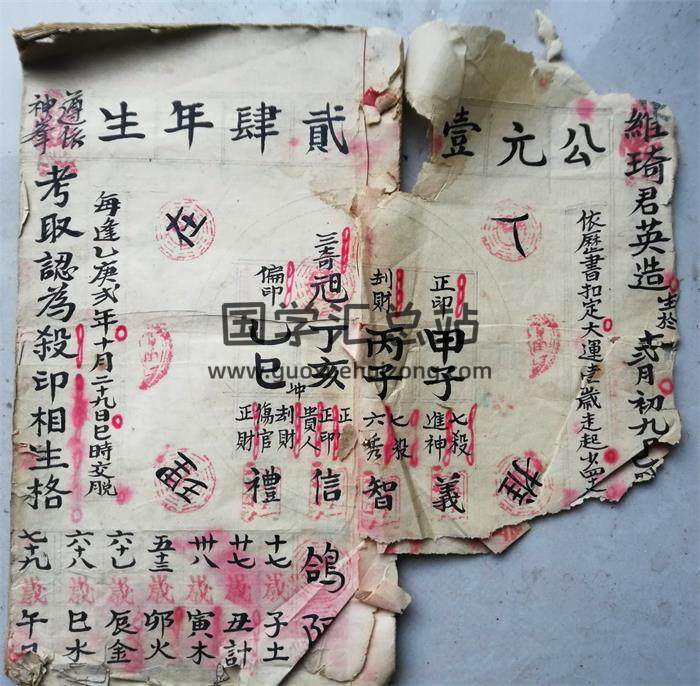 公元壹
貳肆年生
維琦君英造
生於
弍月初九巳
依歷書扣定大運壹歲走起
正印
甲子
七殺
進神
義
刦財
丙子
七殺
六秀
智
三奇
祖
丁亥
正
正印
貴人
信
偏印
乙巳
坤
刦財
傷官
正財
禮
每逢乙庚弍年十月二十九日巳時交脫
神峯
考取認為殺印相生格
鴿
十七
歲
子土
廿七
歲
丑計
卅八
歲
寅木
歲
卯火
歲
辰金
六十八
歲
巳水
七十九
歲
午日
国学汇总站